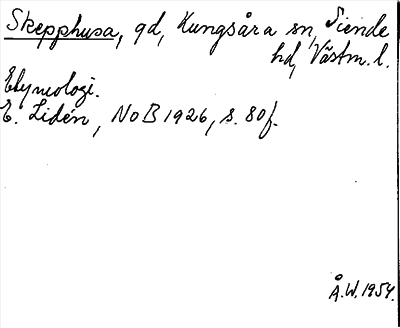 Skepphusa, gd, Kungsåra sn, Siende
hd, Västm. l.
Etymologi.
E. Lidén, NoB 1926, s. 80f.
Å.W. 1954.